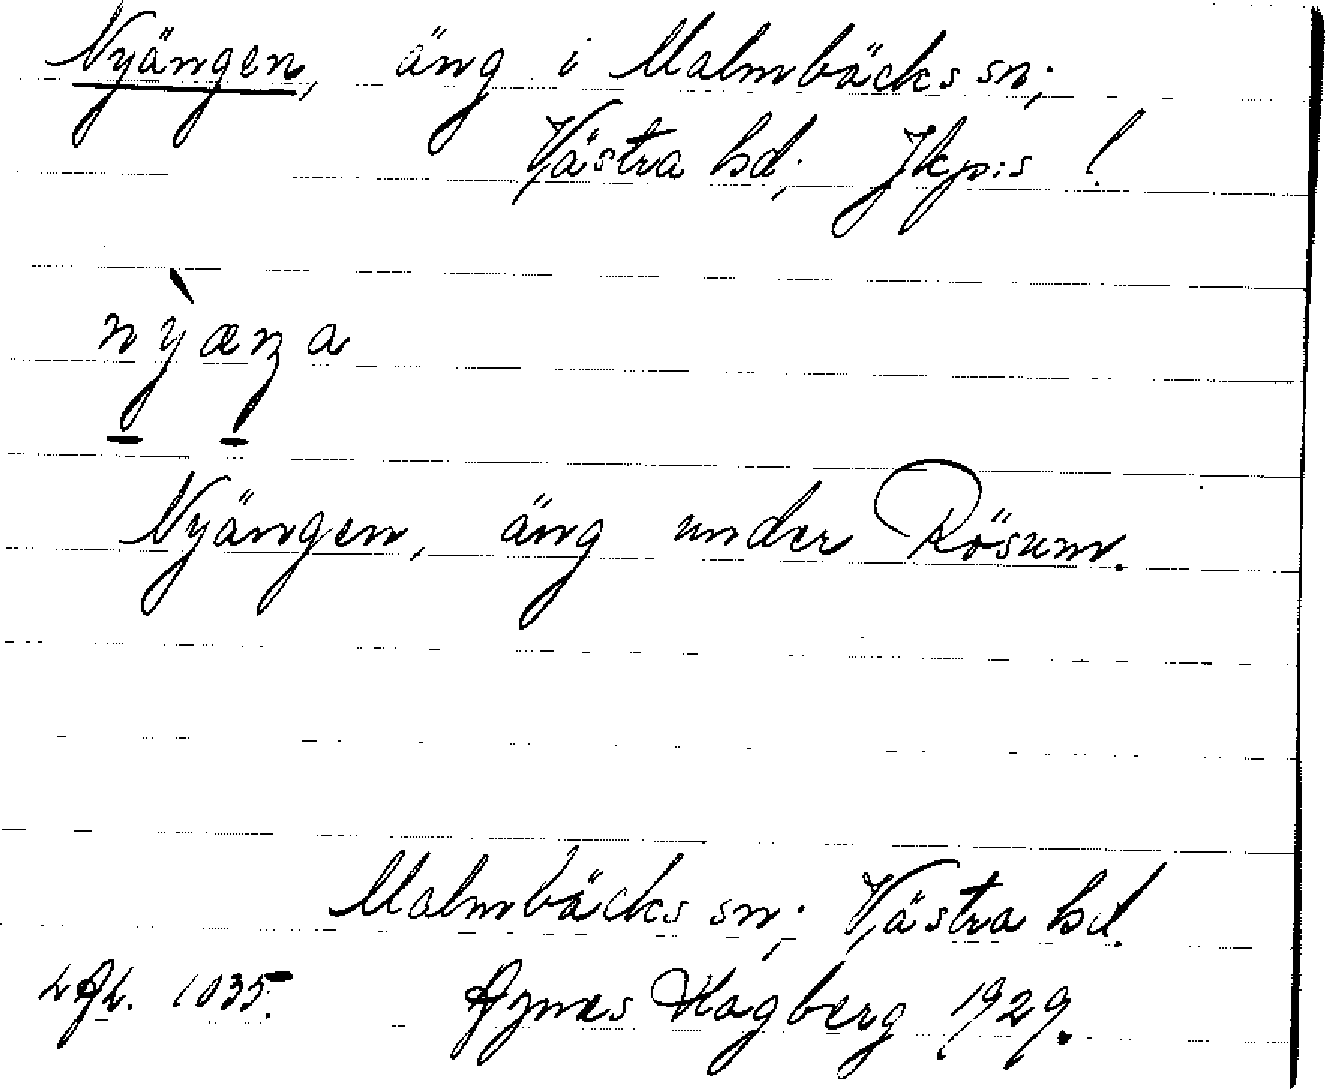 Nyängen, äng i Malmbäcks sn;
Västra hd; Jkp:s l.
Nyängen, äng under Rösum.
Malmbäcks sn; Västra hd.
1035. Agnes Hagberg 1929.